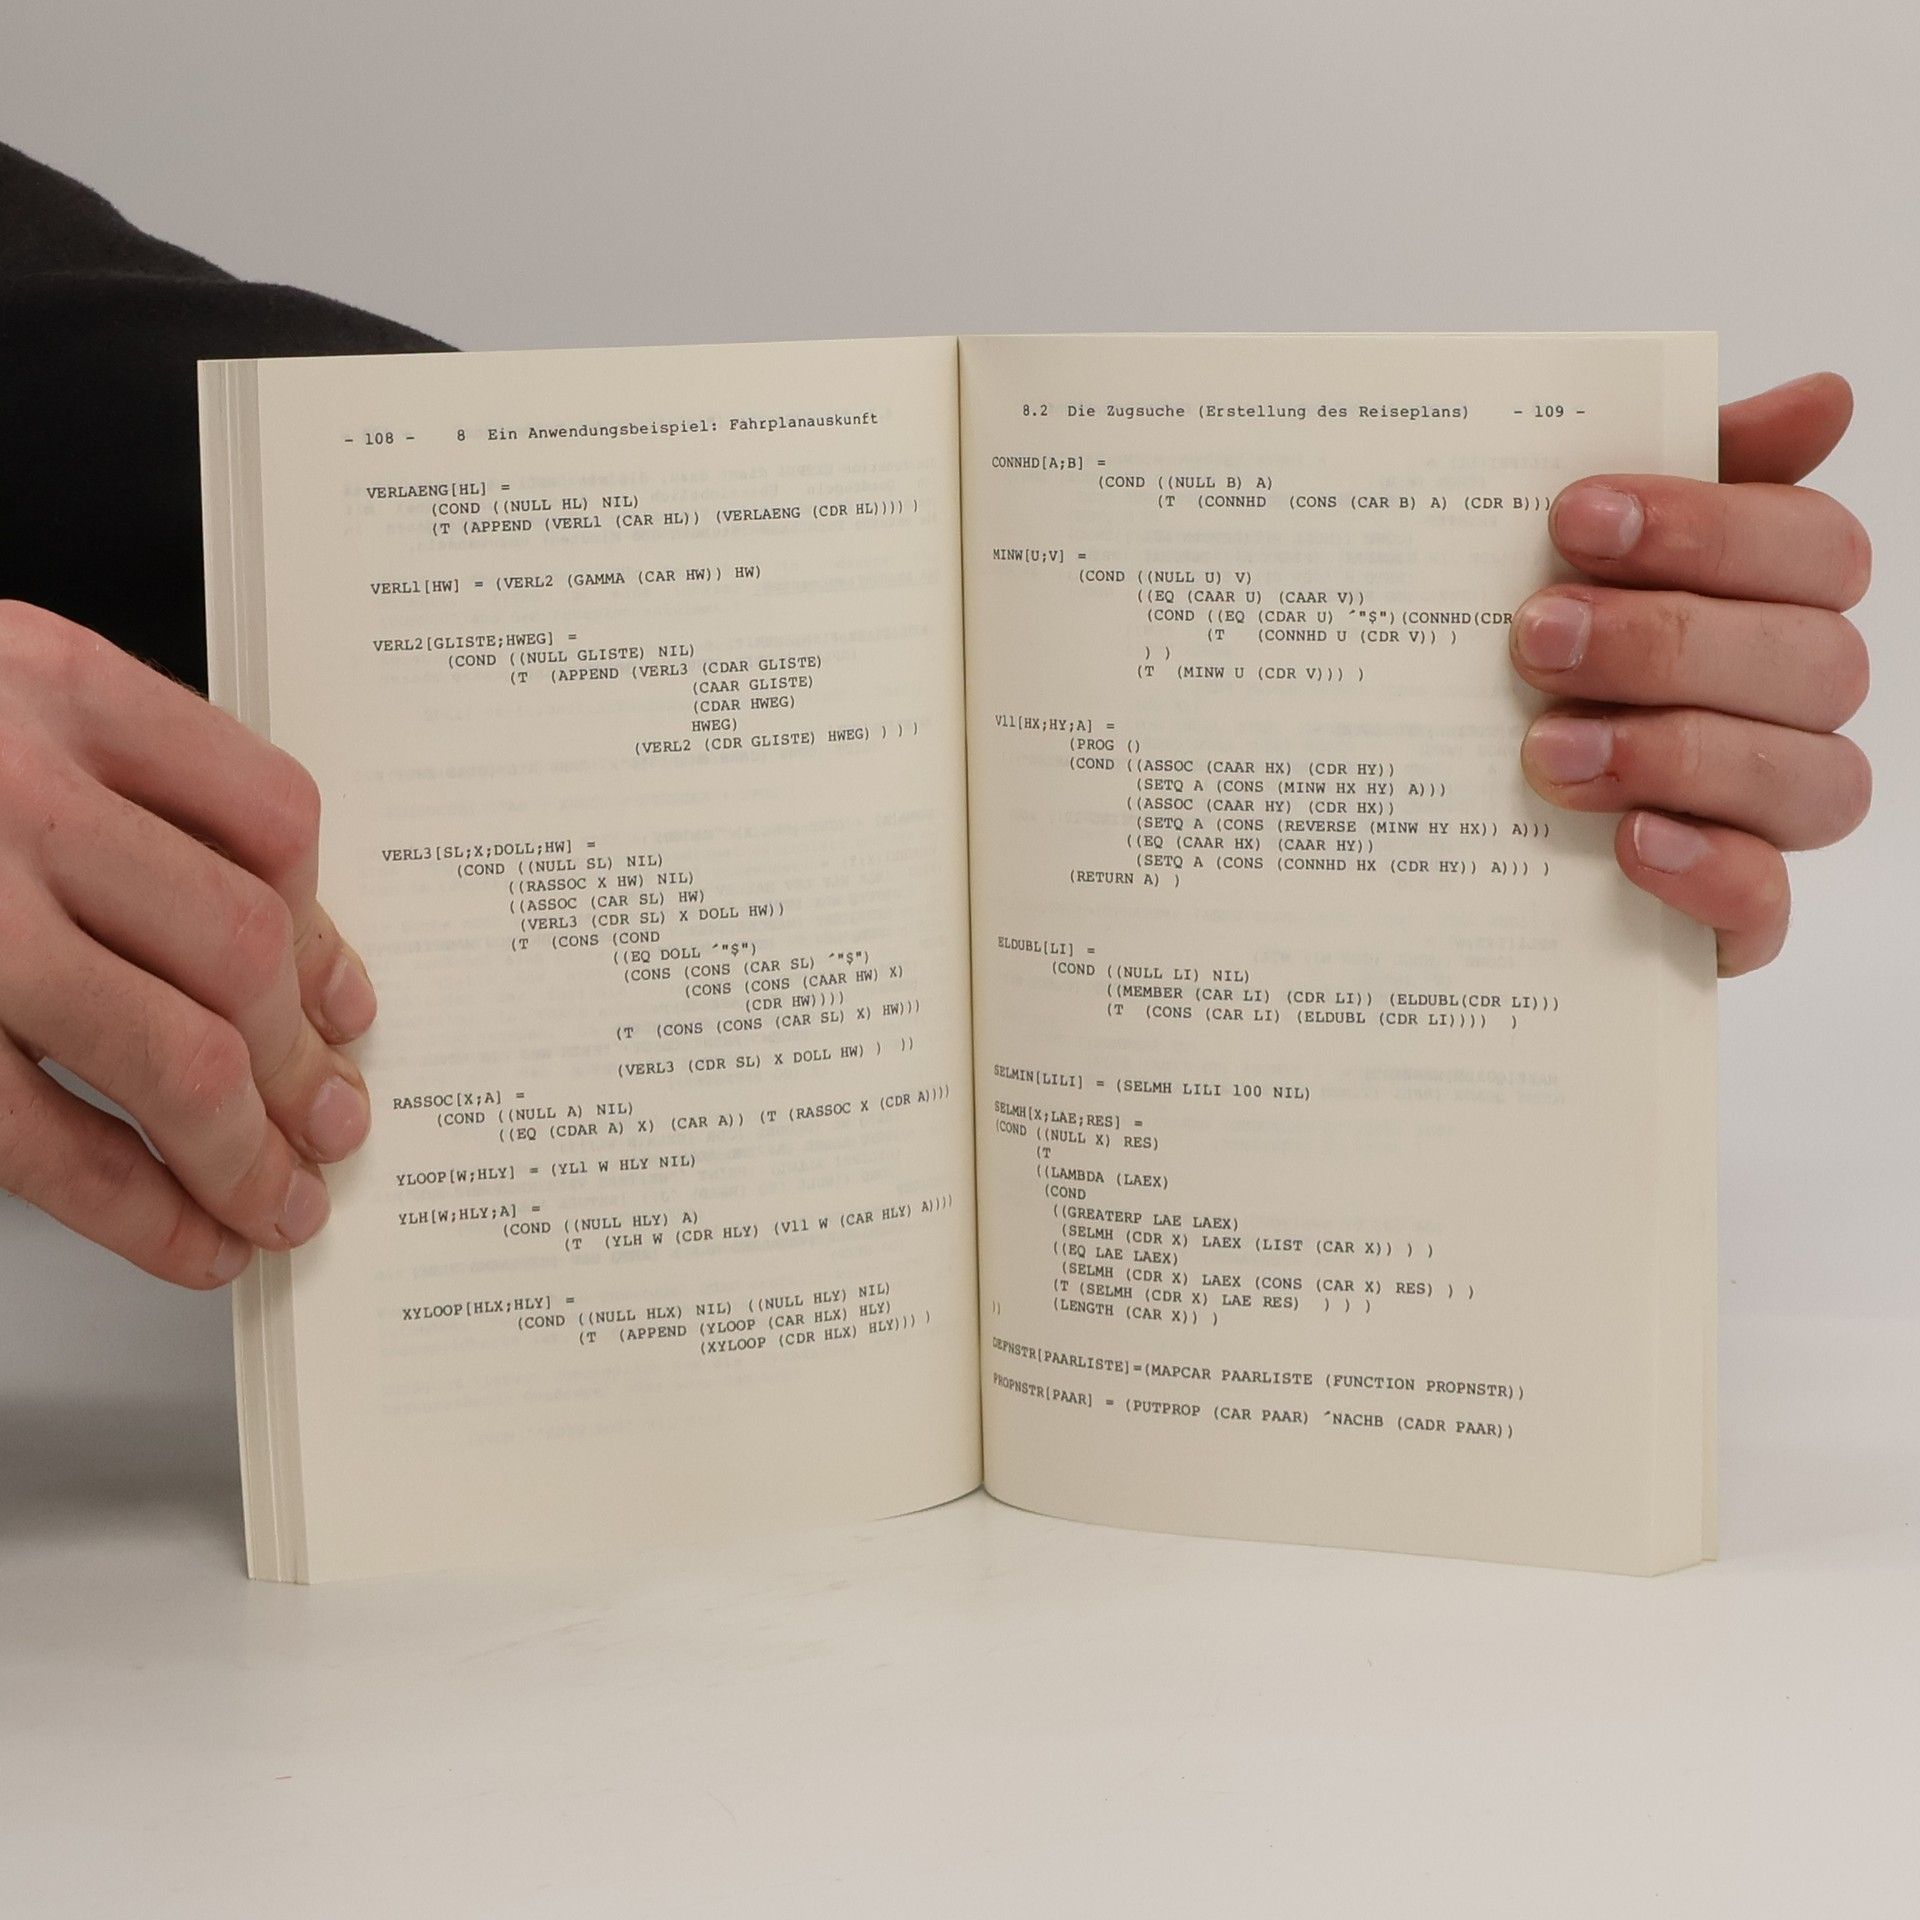 - 108 - 8 Ein Anwendungsbeispiel: Fahrplanauskunft
VERLAENG[HL] =
(COND ((NULL HL) NIL)
(T (APPEND (VERL1 (CAR HL)) (VERLAENG (CDR HL)))) )
VERL1[HW] = (VERL2 (GAMMA (CAR HW)) HW)
VERL2[GLISTE;HWEG] =
(COND ((NULL GLISTE) NIL)
(T (APPEND (VERL3 (CDAR GLISTE)
(CAAR GLISTE)
(CDAR HWEG)
HWEG)
(VERL2 (CDR GLISTE) HWEG) ) ) )
VERL3[SL;X;DOLL;HW] =
(COND ((NULL SL) NIL)
((RASSOC X HW) NIL)
((ASSOC (CAR SL) HW)
(VERL3 (CDR SL) X DOLL HW))
(T (CONS (COND
((EQ DOLL ´"$")
(CONS (CONS (CAR SL) ´"$")
(CONS (CONS (CAAR HW) X)
(CDR HW))))
(T (CONS (CONS (CAR SL) X) HW)))
(VERL3 (CDR SL) X DOLL HW) ) ))
RASSOC[X;A] =
(COND ((NULL A) NIL)
((EQ (CDAR A) X) (CAR A)) (T (RASSOC X (CDR A))))
YLOOP[W;HLY] = (YL1 W HLY NIL)
YLH[W;HLY;A] =
(COND ((NULL HLY) A)
(T (YLH W (CDR HLY) (V11 W (CAR HLY) A))))
XYLOOP[HLX;HLY] =
(COND ((NULL HLX) NIL) ((NULL HLY) NIL)
(T (APPEND (YLOOP (CAR HLX) HLY)
(XYLOOP (CDR HLX) HLY))) )
8.2 Die Zugsuche (Erstellung des Reiseplans) - 109 -
CONNHD[A;B] =
(COND ((NULL B) A)
(T (CONNHD (CONS (CAR B) A) (CDR B)))
MINW[U;V] =
(COND ((NULL U) V)
((EQ (CAAR U) (CAAR V))
(COND ((EQ (CDAR U) ´"$")(CONNHD(CDR
(T (CONNHD U (CDR V)) )
) )
(T (MINW U (CDR V))) )
V11[HX;HY;A] =
(PROG ()
(COND ((ASSOC (CAAR HX) (CDR HY))
(SETQ A (CONS (MINW HX HY) A)))
((ASSOC (CAAR HY) (CDR HX))
(SETQ A (CONS (REVERSE (MINW HY HX)) A)))
((EQ (CAAR HX) (CAAR HY))
(SETQ A (CONS (CONNHD HX (CDR HY)) A))) )
(RETURN A) )
ELDUBL[LI] =
(COND ((NULL LI) NIL)
((MEMBER (CAR LI) (CDR LI)) (ELDUBL(CDR LI)))
(T (CONS (CAR LI) (ELDUBL (CDR LI)))) )
SELMIN[LILI] = (SELMH LILI 100 NIL)
SELMH[X;LAE;RES] =
(COND ((NULL X) RES)
(T
((LAMBDA (LAEX)
(COND
((GREATERP LAE LAEX)
(SELMH (CDR X) LAEX (LIST (CAR X)) ) )
((EQ LAE LAEX)
(SELMH (CDR X) LAEX (CONS (CAR X) RES) ) )
(T (SELMH (CDR X) LAE RES) ) ) )
)) (LENGTH (CAR X)) )
DEFNSTR[PAARLISTE]=(MAPCAR PAARLISTE (FUNCTION PROPNSTR))
PROPNSTR[PAAR] = (PUTPROP (CAR PAAR) ´NACHB (CADR PAAR))